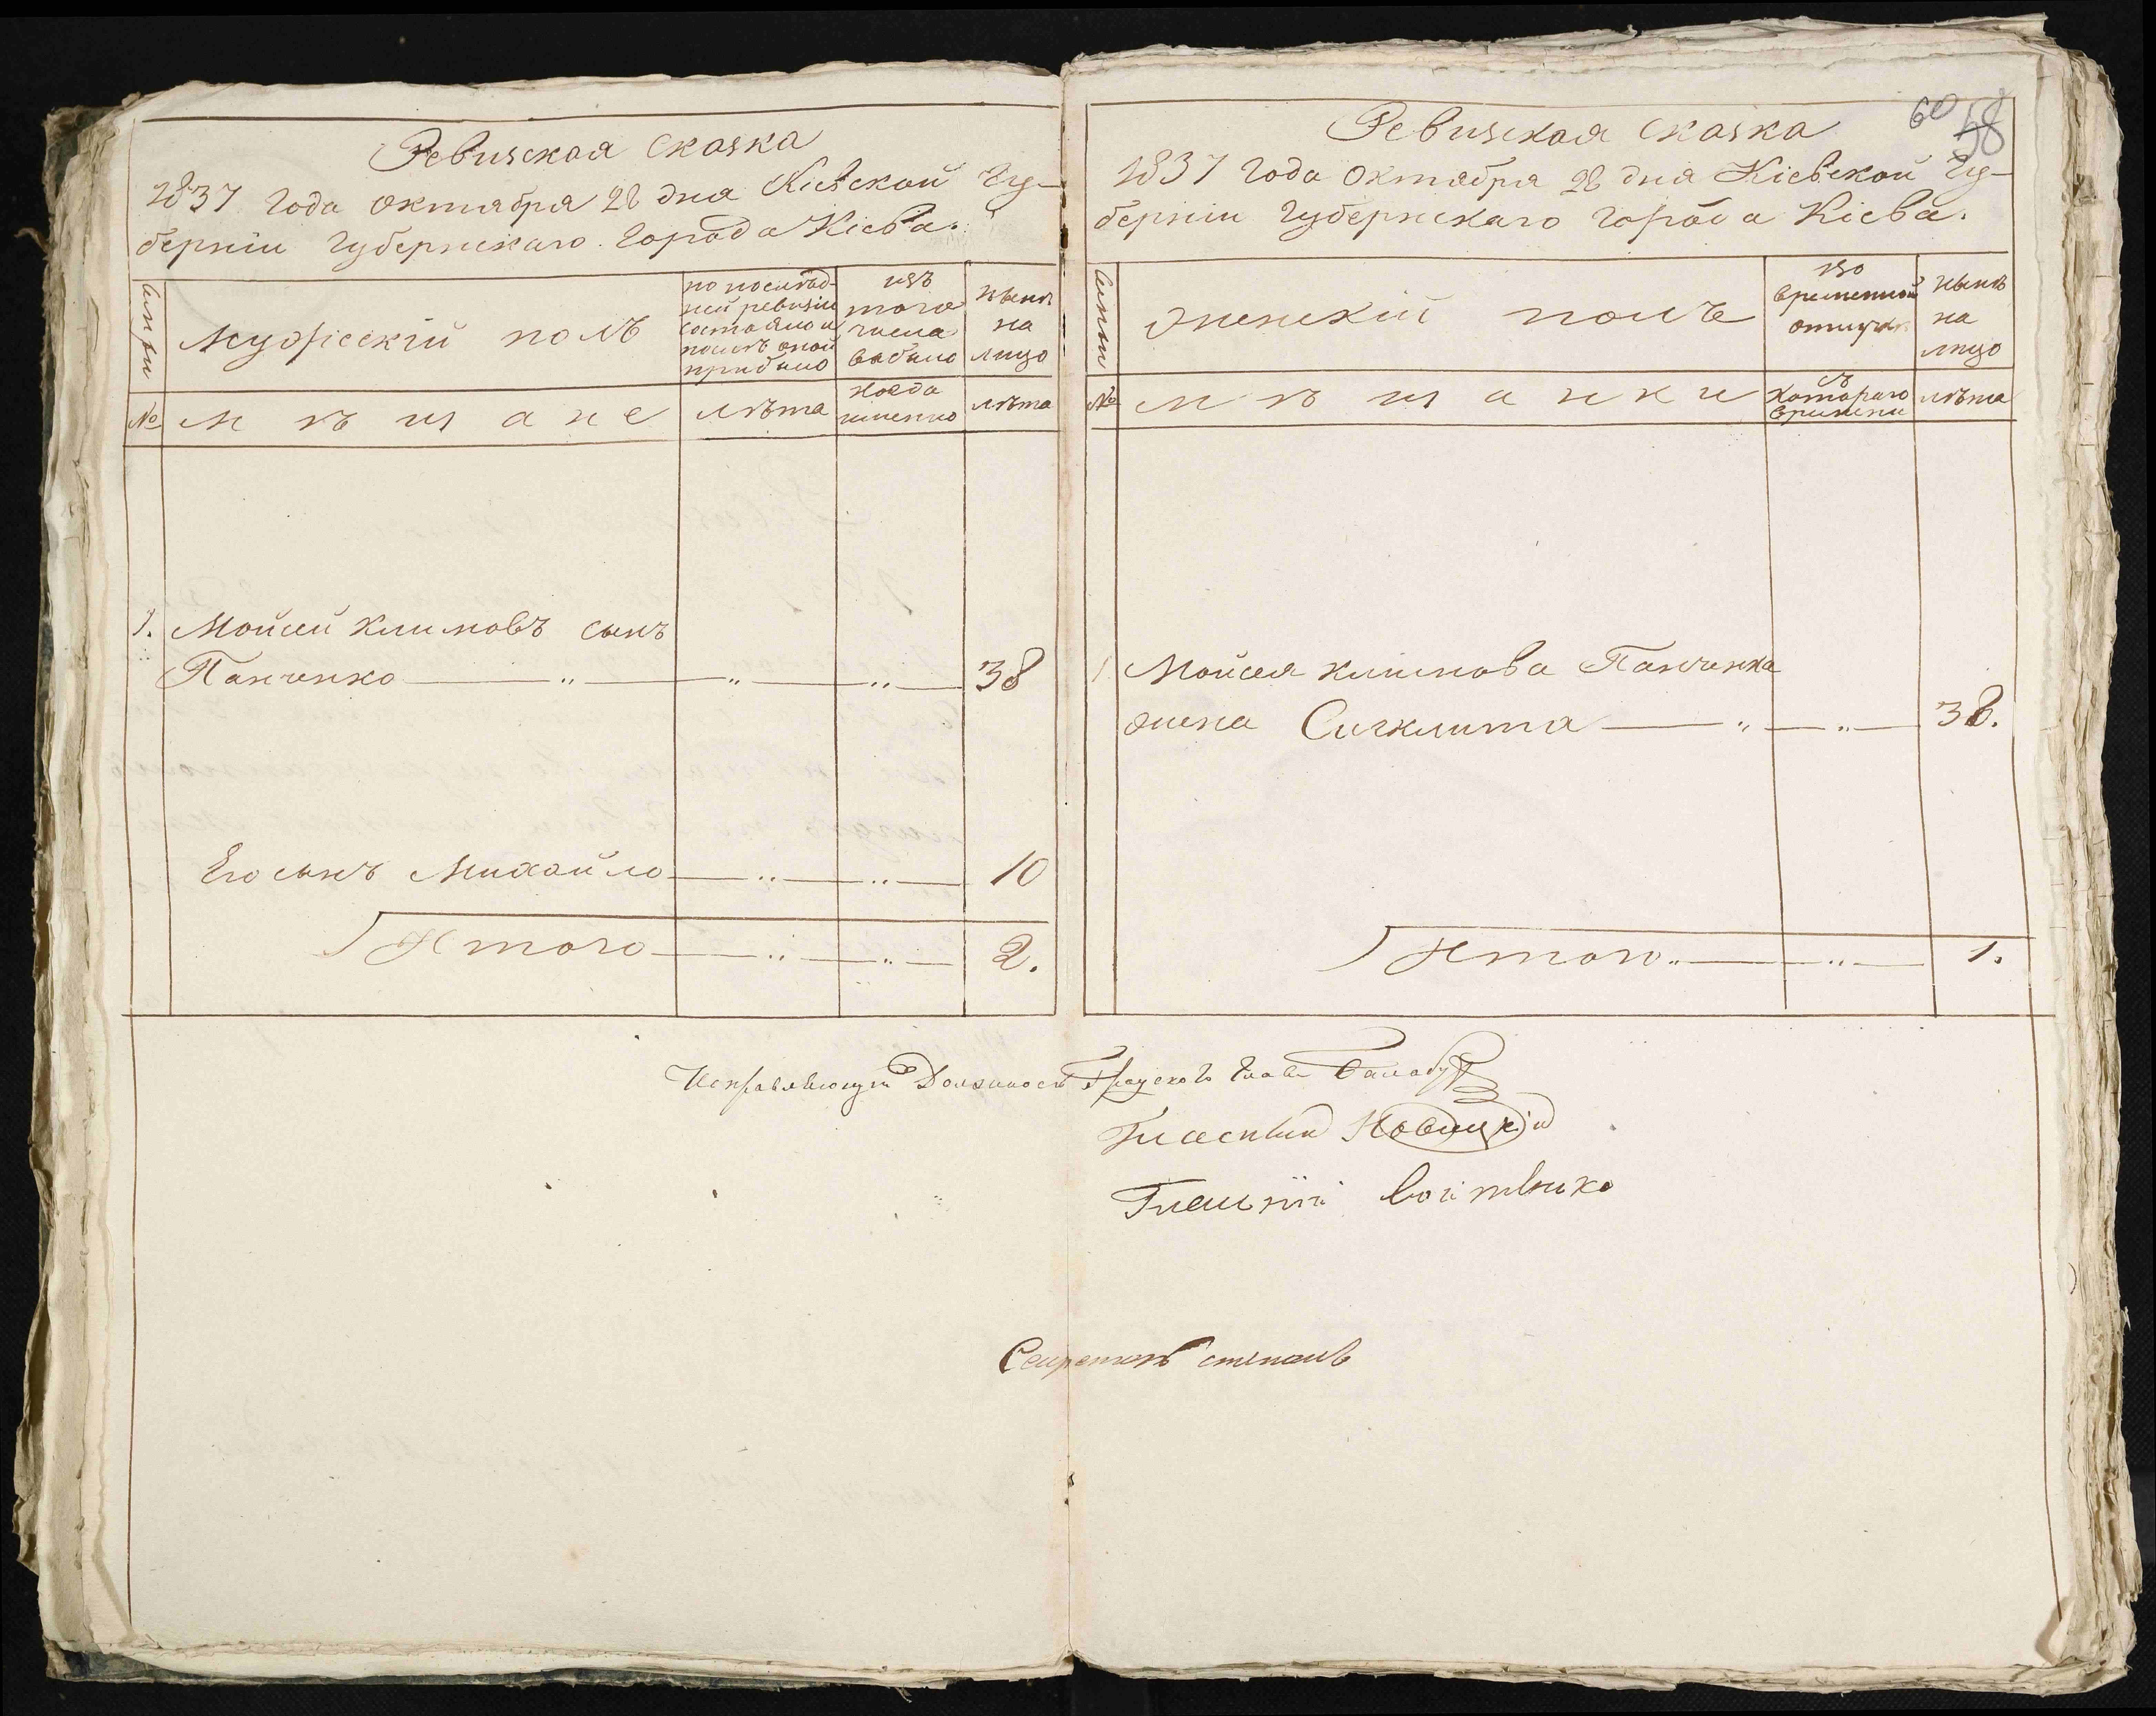 Ревизская сказка
1837 года октября 28 дня Кіевской гу-
берніи губернскаго города Кіева.
семьи
мужескій полъ
по послѣд-
ней ревизіи
состояло и
послѣ оной
прибыло
изъ
того
числа
выбыло
нынѣ
на
лицо
№
мѣщане
лѣта
когда
именно
лѣта
1. Мойсей Климовъ сынъ
Панченко 38
Его сынъ Михайло 10
Итого 2.
60 58
Ревизская сказка
1837 года октября 28 дня Кіевской гу-
берніи губернскаго города Кіева.
семьи
женскій полъ
во
временной
отлучкѣ
нынѣ
на
лицо
№
мѣщанки
съ
котораго
времени
лѣта
1 Мойсея Климова Панченка
жена Сигклита 38.
Итого 1.
Исправляющій Должность Градского Главы
Гласный Новицкій
Гласній Войтенко
Секретарь